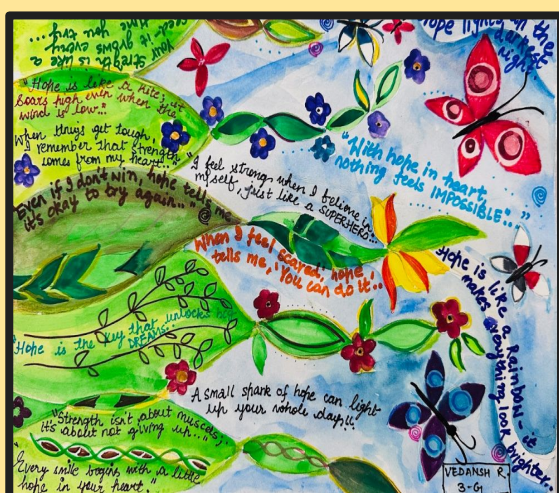 Strength is like a
seed it grows every
time you try...
darkest
night
"Hope is like a kite; it
soars high even when the
wind is low..."
When things get tough,
I remember that strength
comes from my heart..
Even if I don't win, hope tells me
it's okay to try again..."
"I feel strong when I believe in
myself, just like a SUPERHERO...
"With hope in heart,
nothing feels IMPOSSIBLE"..."
When I feel scared, hope
tells me, 'You can do it'..
Hope is like a Rainbow - it
makes everything look brighter..
"Hope is the key that unlocks
DREAMS..
A small spark of hope can light
up your whole day!!
"Strength isn't about muscles,
it's about not giving up.."
"Every smile begins with a little
hope in your heart."
VEDANSH R.
3-G